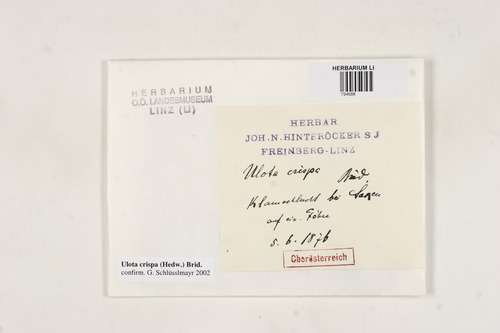 HERBARIUM LI
794688
HERBARIUM
O.Ö. LANDESMUSEUM
LINZ (LI)
HERBAR
JOH. N. HINTERÖCKER S J
FREINBERG-LINZ
Ulota crispa Brid.
Klamschlucht bei Saxen
auf
5. 6. 1876
Oberösterreich
Ulota crispa (Hedw.) Brid.
confirm. G. Schlüsslmayr 2002